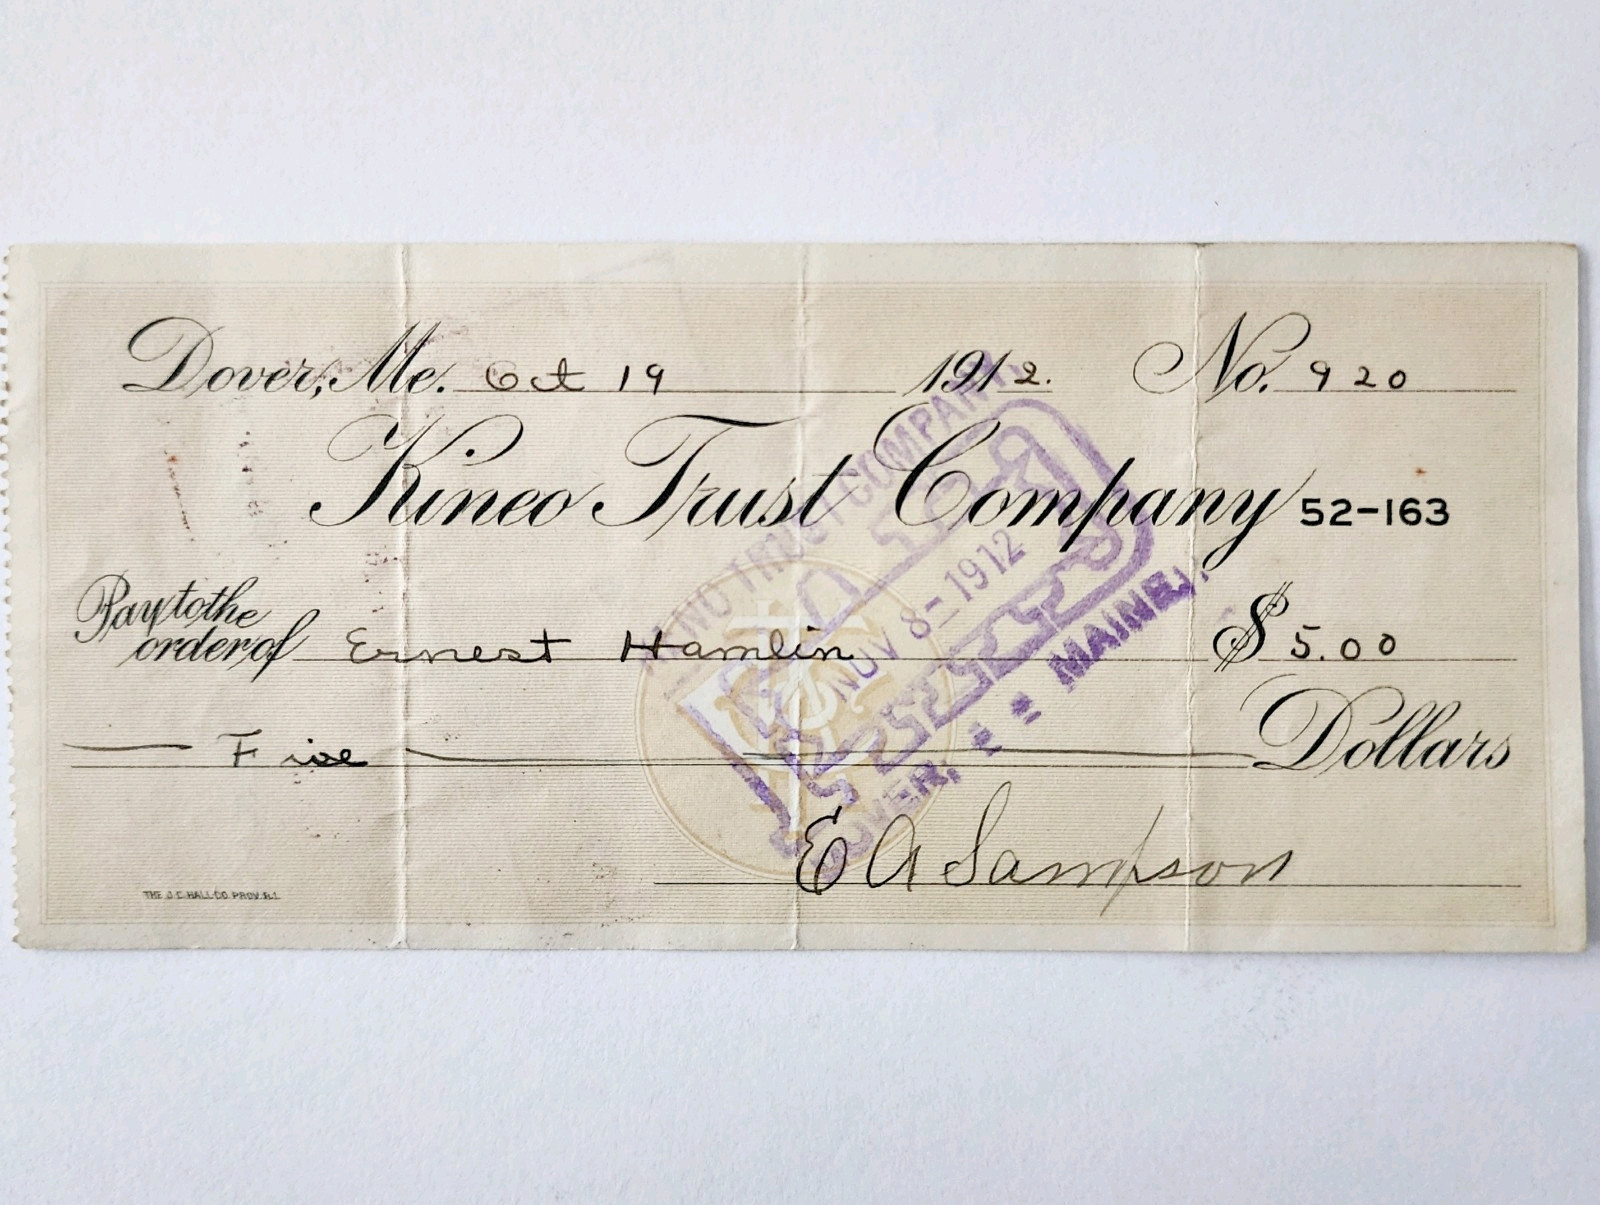 Dover, Me. Oct 19 1912. No. 920
Kineo Trust Company 52-163
Pay to the
order of Ernest Hamlin $ 5.00
Five Dollars
E A Sampson
THE J.C. HALL CO. PROV. R.I.
KINEO TRUST COMPANY,
PAID
NOV 8-1912
DOVER, MAINE.